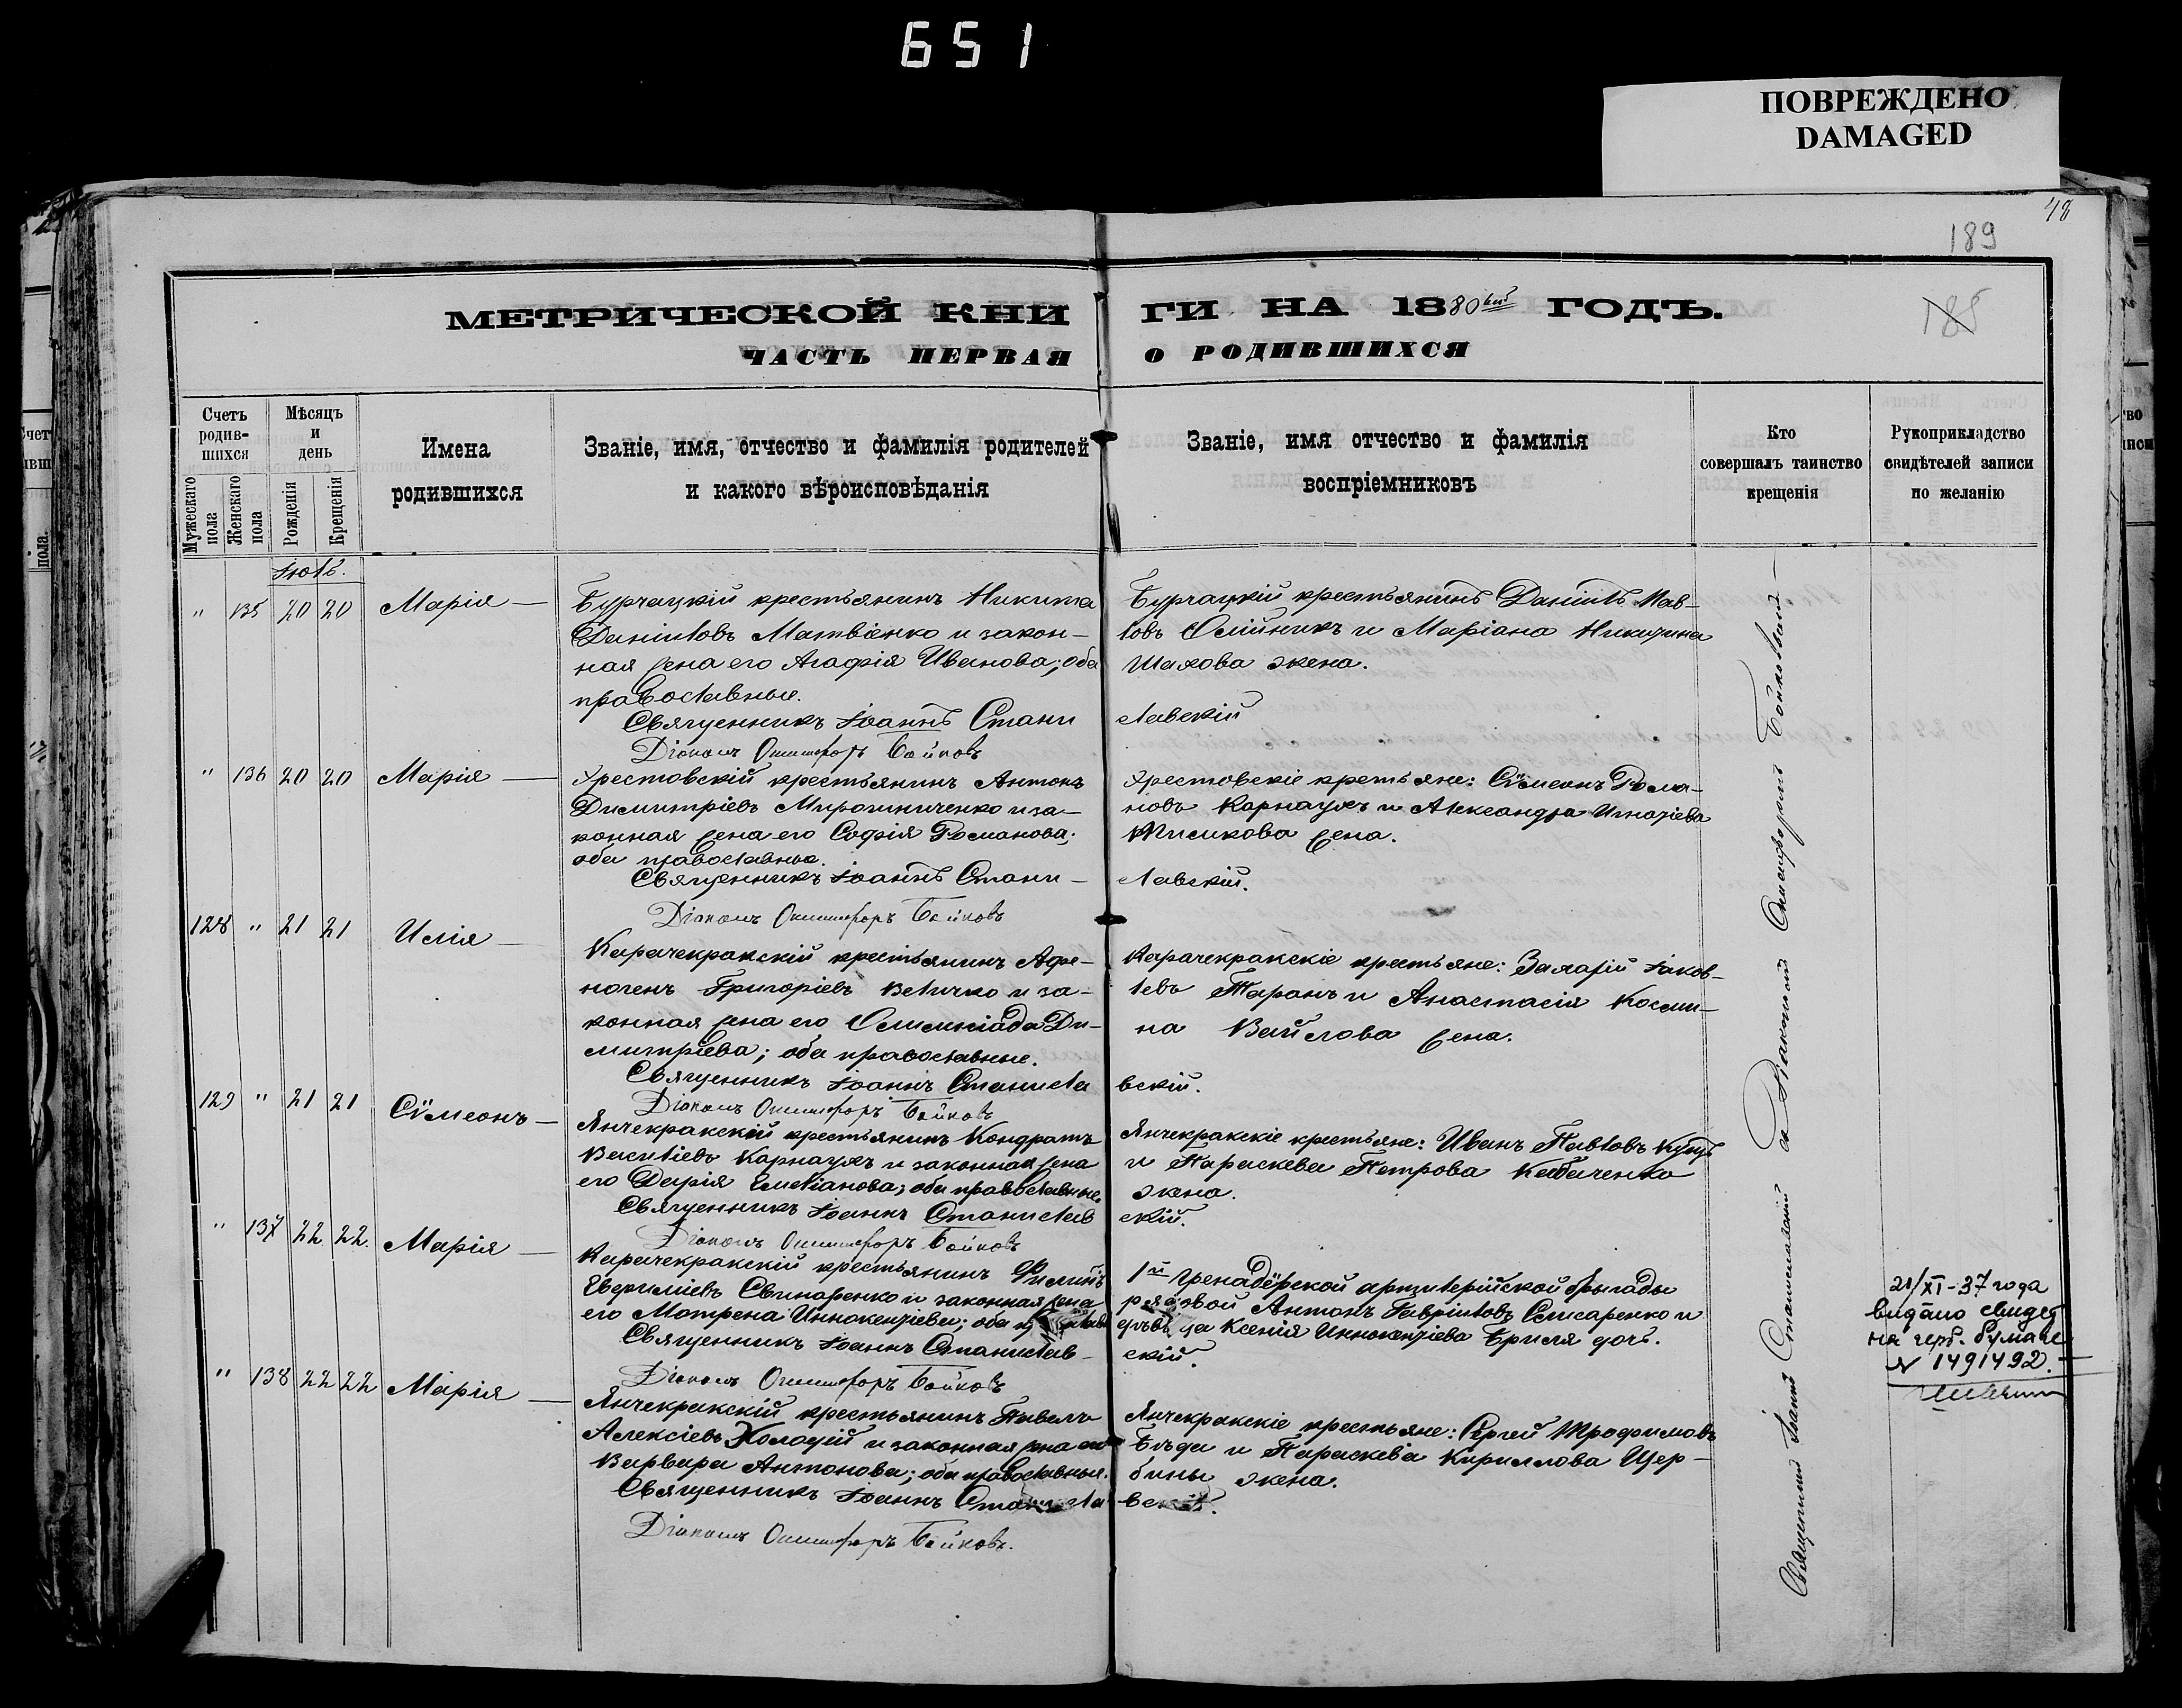 651
ПОВРЕЖДЕНО
DAMAGED
48
189
185
МЕТРИЧЕСКОЙ КНИГИ НА 1880 ГОДЪ.
ЧАСТЬ ПЕРВАЯ О РОДИВШИХСЯ
Счетъ родив-шихся
Мужескаго пола
Женскаго пола
Мѣсяцъ и день
Рожденія
Крещенія
Имена родившихся
Званіе, имя, отчество и фамилія родителей
и какого вѣроисповѣданія
Званіе, имя отчество и фамилія
воспріемниковъ
Кто
совершалъ таинство
крещенія
Рукоприкладство
свидѣтелей записи
по желанію
Іюль.
" 135 20 20 Марія —
Бурчацкій крестьянинъ Никита
Даніиловъ Матвіенко и закон-
ная жена его Агафія Иванова; оба
православные.
Бурчацкій крестьянинъ Даніилъ Пав-
ловъ Олійникъ и Маріана Никитина
Шахова жена.
Священникъ Іоаннъ Станиславскій
Діаконъ Онисифоръ Бойковъ
" 136 20 20 Марія —
Хрестовскій крестьянинъ Антонъ
Димитріевъ Мирошниченко и за-
конная жена его Софія Романова;
оба православные.
Хрестовскіе крестьяне: Сѵмеонъ Рома-
новъ Карнаухъ и Александра Игнатіева
жена.
Священникъ Іоаннъ Стани-
лавскій.
Діаконъ Онисифоръ Бойковъ
128 " 21 21 Илія —
Карачекракскій крестьянинъ Афи-
ногенъ Григоріевъ Величко и за-
конная жена его Олимпіада Ди-
митріева; оба православные.
Карачекракскіе крестьяне: Захарій Іаков-
левъ Таранъ и Анастасія Косми-
на жена.
Священникъ Іоаннъ Станиславскій.
Діаконъ Онисифоръ Бойковъ
129 " 21 21 Сѵмеонъ —
Янчекракскій крестьянинъ Кондратъ
Василіевъ Карнаухъ и законная жена
его Дарія Емеліанова; оба православные.
Янчекракскіе крестьяне: Иванъ Павловъ
и Параскева Петрова Кабаченко
жена.
Священникъ Іоаннъ Станиславскій.
Діаконъ Онисифоръ Бойковъ
" 137 22 22. Марія —
Карачекракскій крестьянинъ Филиппъ
Свинаренко и законная жена
его Мотрена Иннокентіева; оба
1й гренадёрской артилерійской бригады
рядовой Антонъ Гавріиловъ Слисаренко и
Ксенія Иннокентіева дочь.
Священникъ Іоаннъ Станиславскій.
Діаконъ Онисифоръ Бойковъ
21/XI-37 года
видано свидет
на герб. бумаге
№ 1491492.
" 138 22 22 Марія —
Янчекракскій крестьянинъ Павелъ
Алексіевъ Холодій и законная жена его
Варвара Антонова; оба православные.
Янчекракскіе крестьяне: Сергей Трофимовъ
Бѣда и Параскева Кириллова Щер-
бины жена.
Священникъ Іоаннъ Станиславскій.
Діаконъ Онисифоръ Бойковъ.
Священникъ Іоаннъ Станиславскій съ Діакономъ Онисифоромъ Бойковымъ